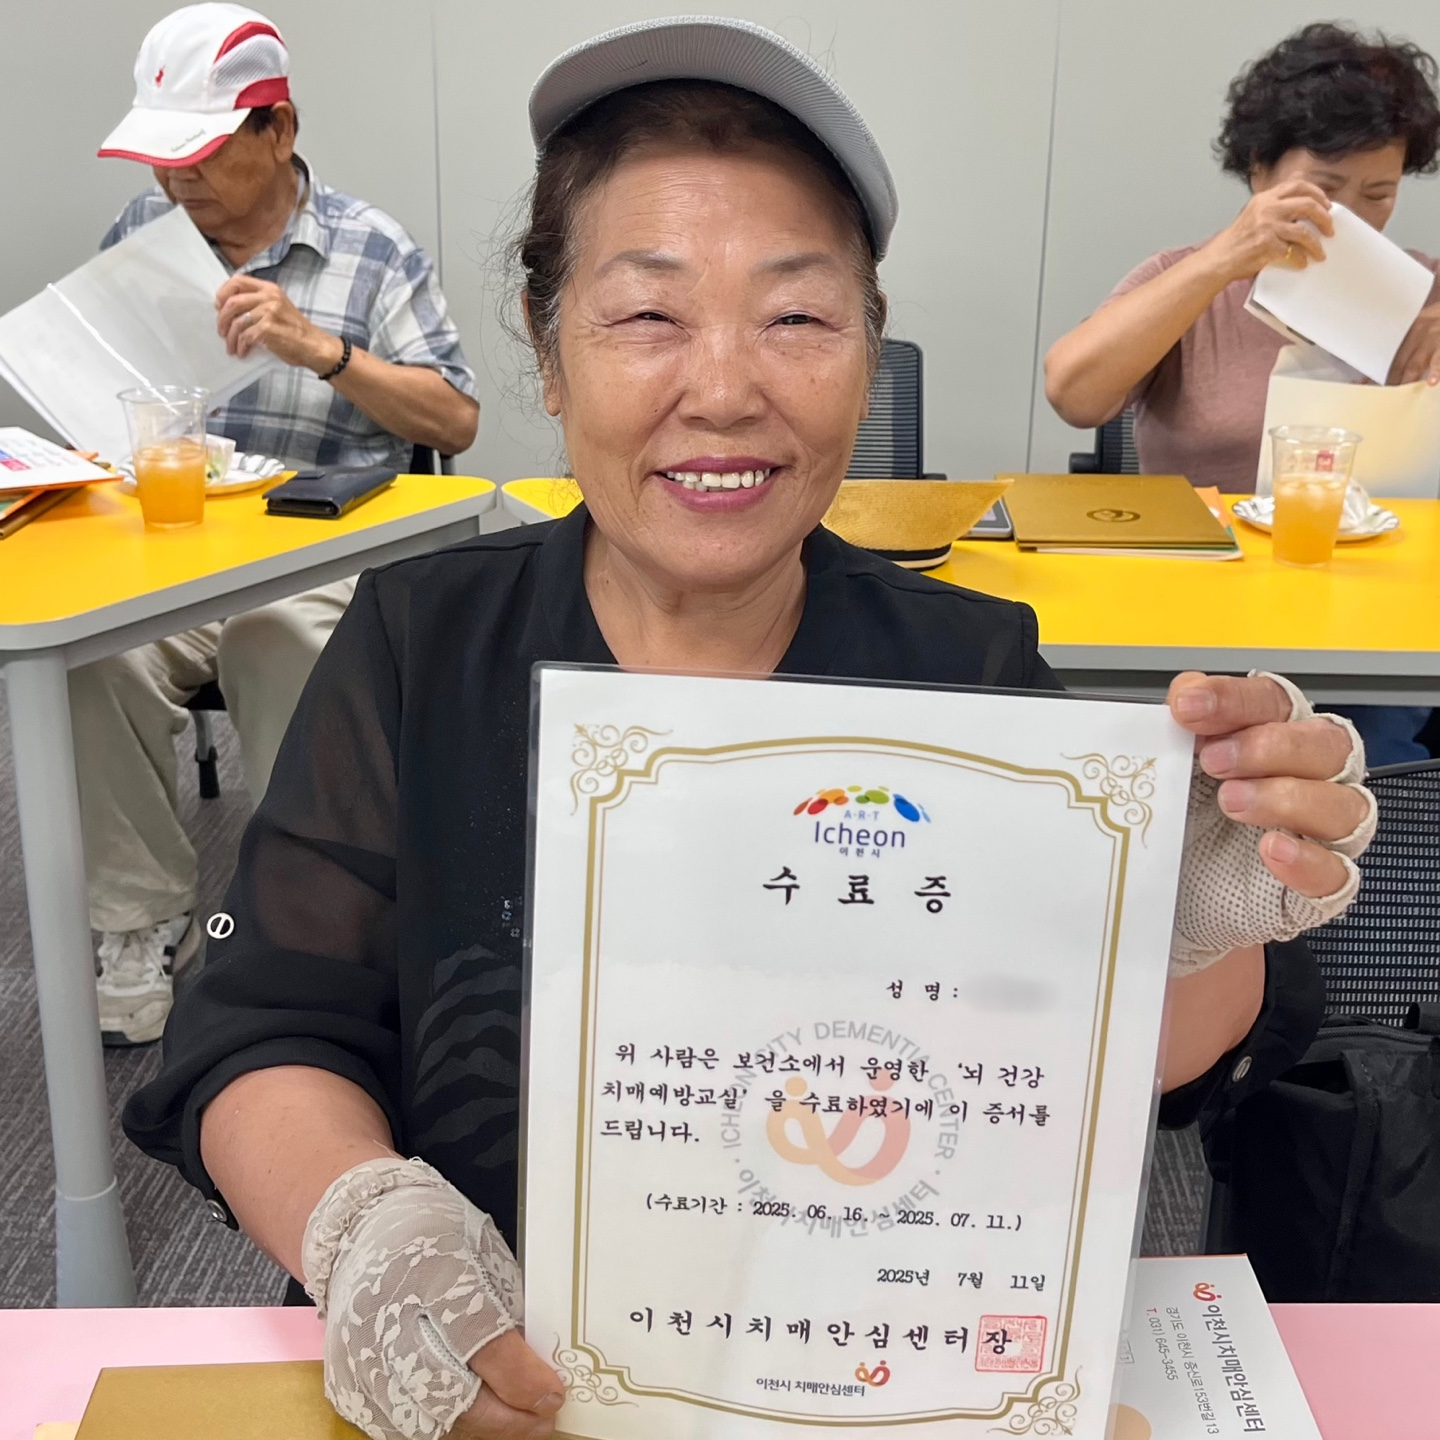 A·R·T
Icheon
이천시
수 료 증
성 명 :
위 사람은 보건소에서 운영한 ‘뇌 건강
치매예방교실’ 을 수료하였기에 이 증서를
드립니다.
(수료기간 : 2025. 06. 16. ~ 2025. 07. 11.)
2025년 7월 11일
이천시치매안심센터장
이천시 치매안심센터
ICHEON CITY DEMENTIA CENTER
이천시치매안심센터
이천시치매안심센터
경기도 이천시 증신로153번길 13
T. 031) 645-3455